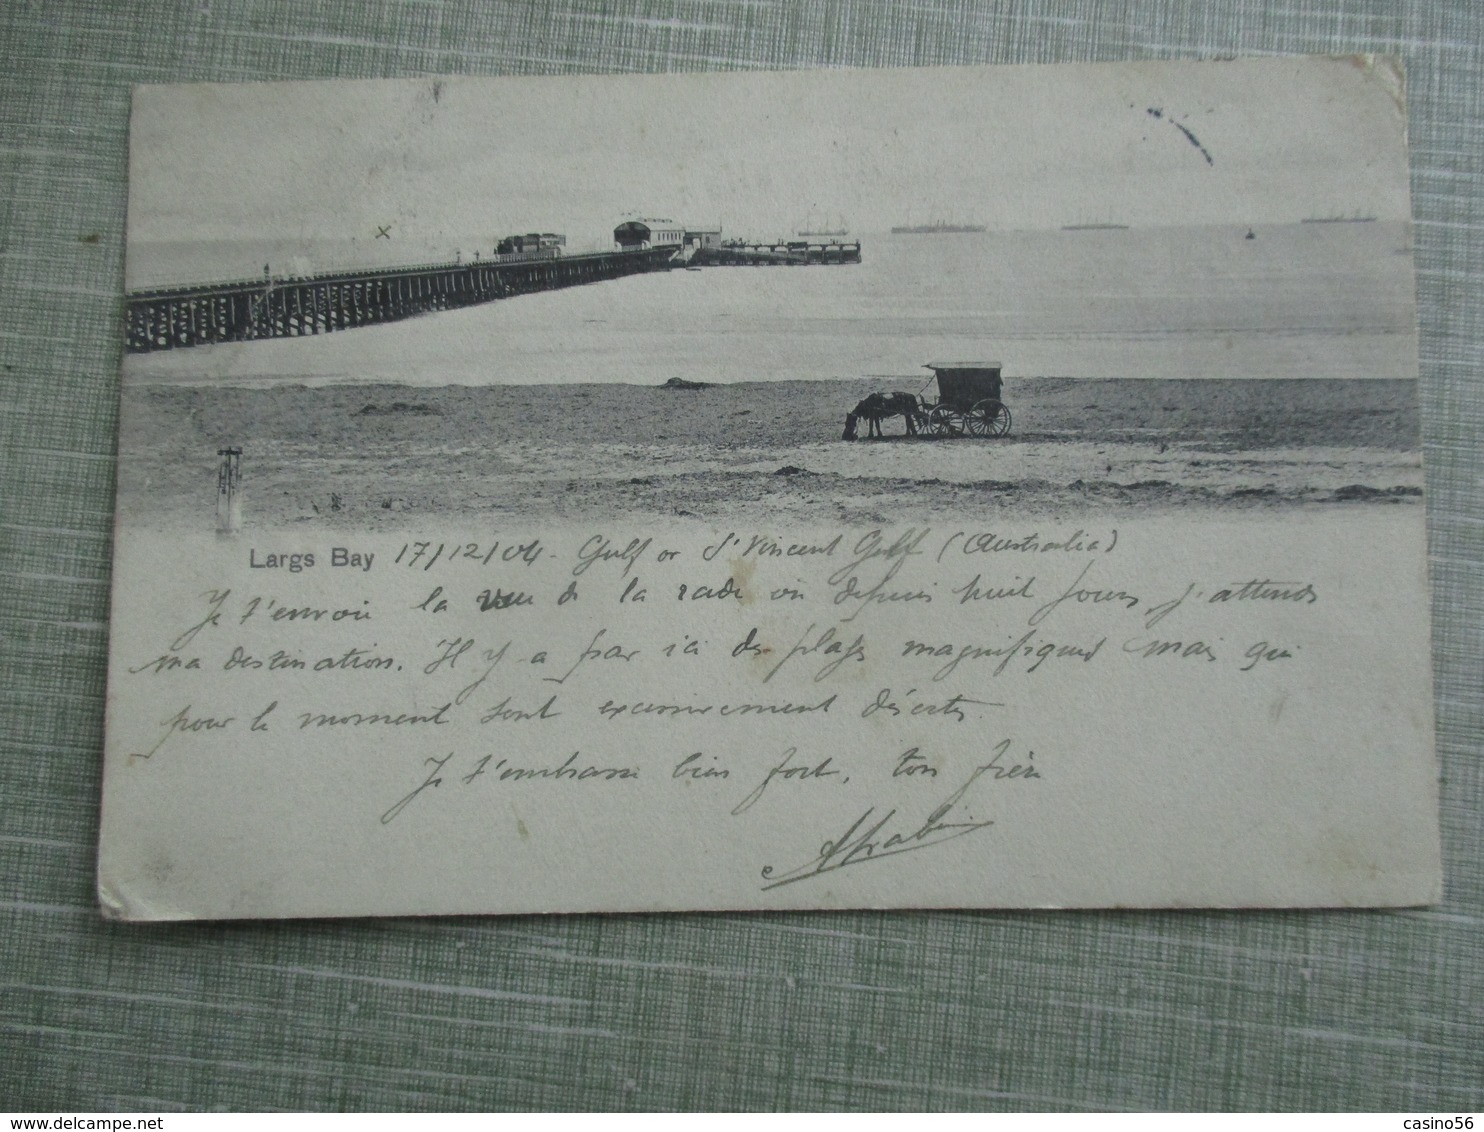 Largs Bay 17/12/04 - Gulf or St Vincent Gulf (Australia)
Je t'envoie la vue de la rade où depuis huit jours, j'attends
ma destination. Il y a par ici des plages magnifiques mais qui
pour le moment sont excessivement désertes.
Je t'embrasse bien fort, ton frère
www.delcampe.net
casino56